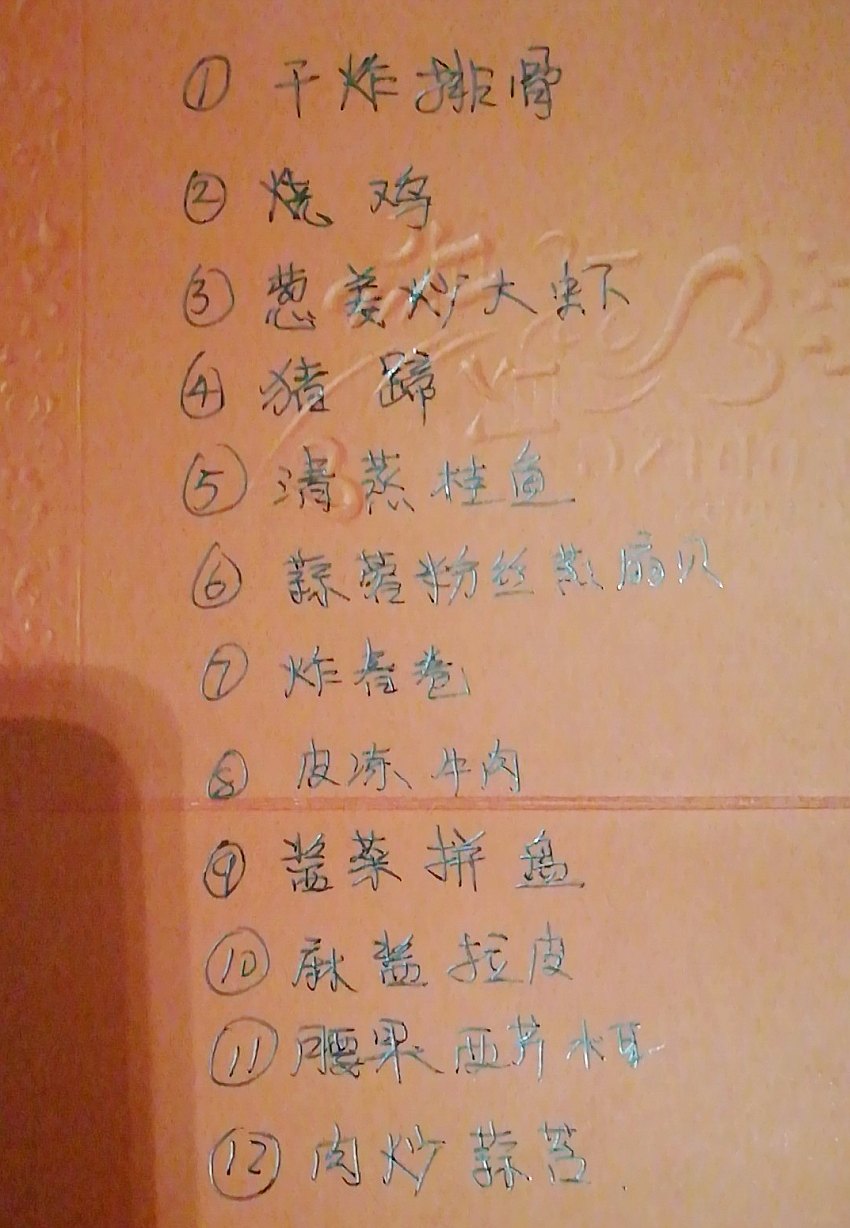 ① 干炸排骨
② 烧鸡
③ 葱姜炒大虾
④ 猪蹄
⑤ 清蒸桂鱼
⑥ 蒜蓉粉丝蒸扇贝
⑦ 炸春卷
⑧ 皮冻牛肉
⑨ 酱菜拼盘
⑩ 麻酱拉皮
⑪ 腰果西芹木耳
⑫ 肉炒蒜苔